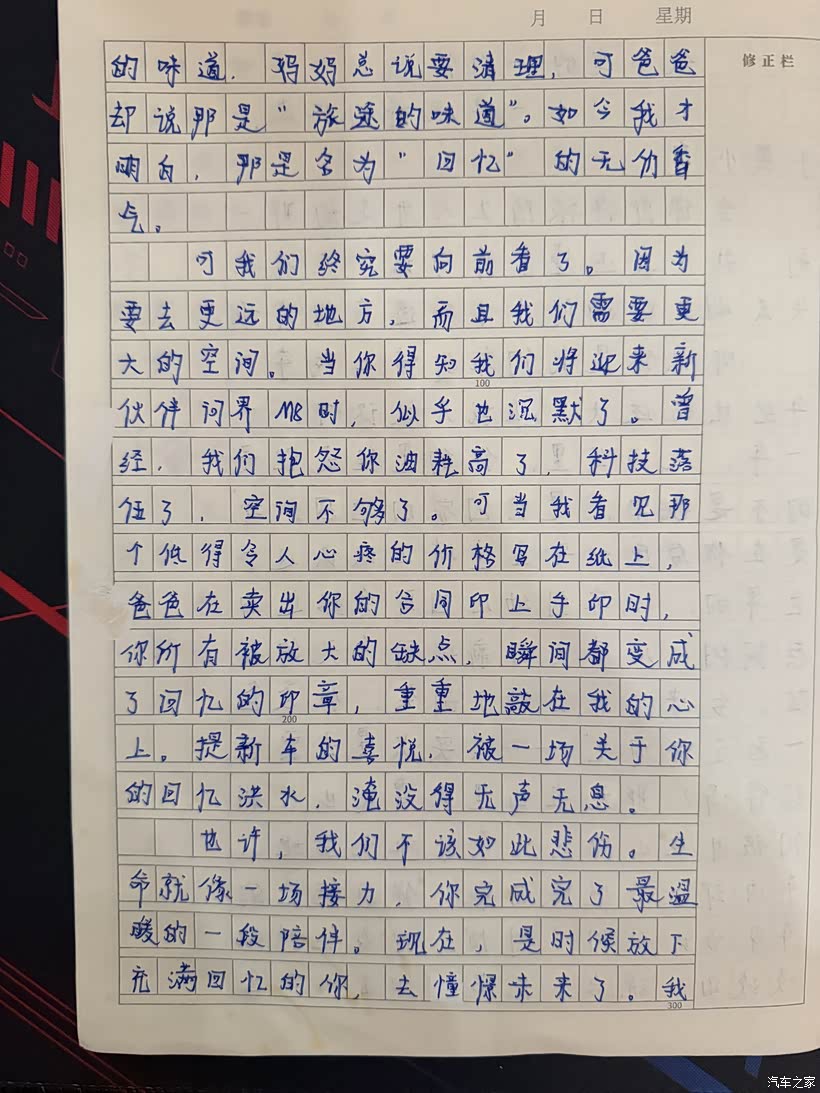 月 日 星期
修正栏
的味道，妈妈总说要清理，可爸爸
却说那是“旅途的味道”。如今我才
明白，那是名为“回忆”的无价香
气。
可我们终究要向前看了。因为
要去更远的地方，而且我们需要更
大的空间。当你得知我们将迎来新
100
伙伴问界M8时，似乎也沉默了。曾
经，我们抱怨你油耗高了，科技落
伍了，空间不够了。可当我看见那
个低得令人心疼的价格写在纸上，
爸爸在卖出你的合同印上手印时，
你所有被放大的缺点，瞬间都变成
了回忆的印章，重重地敲在我的心
200
上。提新车的喜悦，被一场关于你
的回忆洪水，淹没得无声无息。
也许，我们不该如此悲伤。生
命就像一场接力，你完成完了最温
暖的一段陪伴。现在，是时候放下
充满回忆的你，去憧憬未来了。我
300
汽车之家